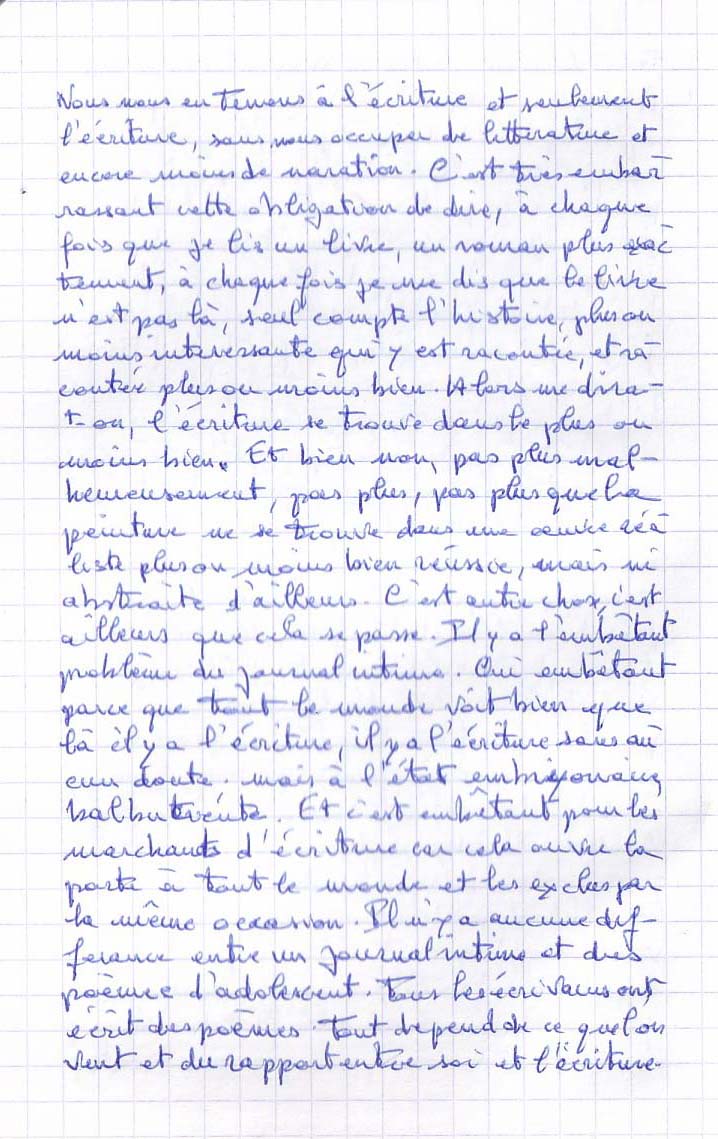 Nous nous en tenons à l'écriture et seulement
l'écriture, sans nous occuper de litterature et
encore moins de naration. C'est très embar
rassant cette obligation de dire, à chaque
fois que je lis un livre, un roman plus exac
tement, à chaque fois je me dis que le livre
n'est pas là, seul compte l'histoire, plus ou
moins interessante qui y est racontée, et ra
contée plus ou moins bien. Alors me dira-
t-on, l'écriture se trouve dans le plus ou
moins bien. Et bien non, pas plus mal-
heureusement, pas plus, pas plus que la
peinture ne se trouve dans une œuvre réa
liste plus ou moins bien réussie, mais ni
abstraite d'ailleurs. C'est autre chose, c'est
ailleurs que cela se passe. Il y a l'embêtant
problème du journal intime. Oui embêtant
parce que tout le monde voit bien que
là il y a l'écriture, il y a l'écriture sans au
cun doute, mais à l'état embryonaire,
balbutiente. Et c'est embêtant pour les
marchants d'écriture car cela ouvre la
porte à tout le monde et les exclus par
la même occasion. Il n'y a aucune dif-
ferance entre un journal intime et des
poèmes d'adolescent. Tous les écrivains ont
écrit des poèmes. Tout depend de ce que l'on
veut et du rapport entre soi et l'écriture.